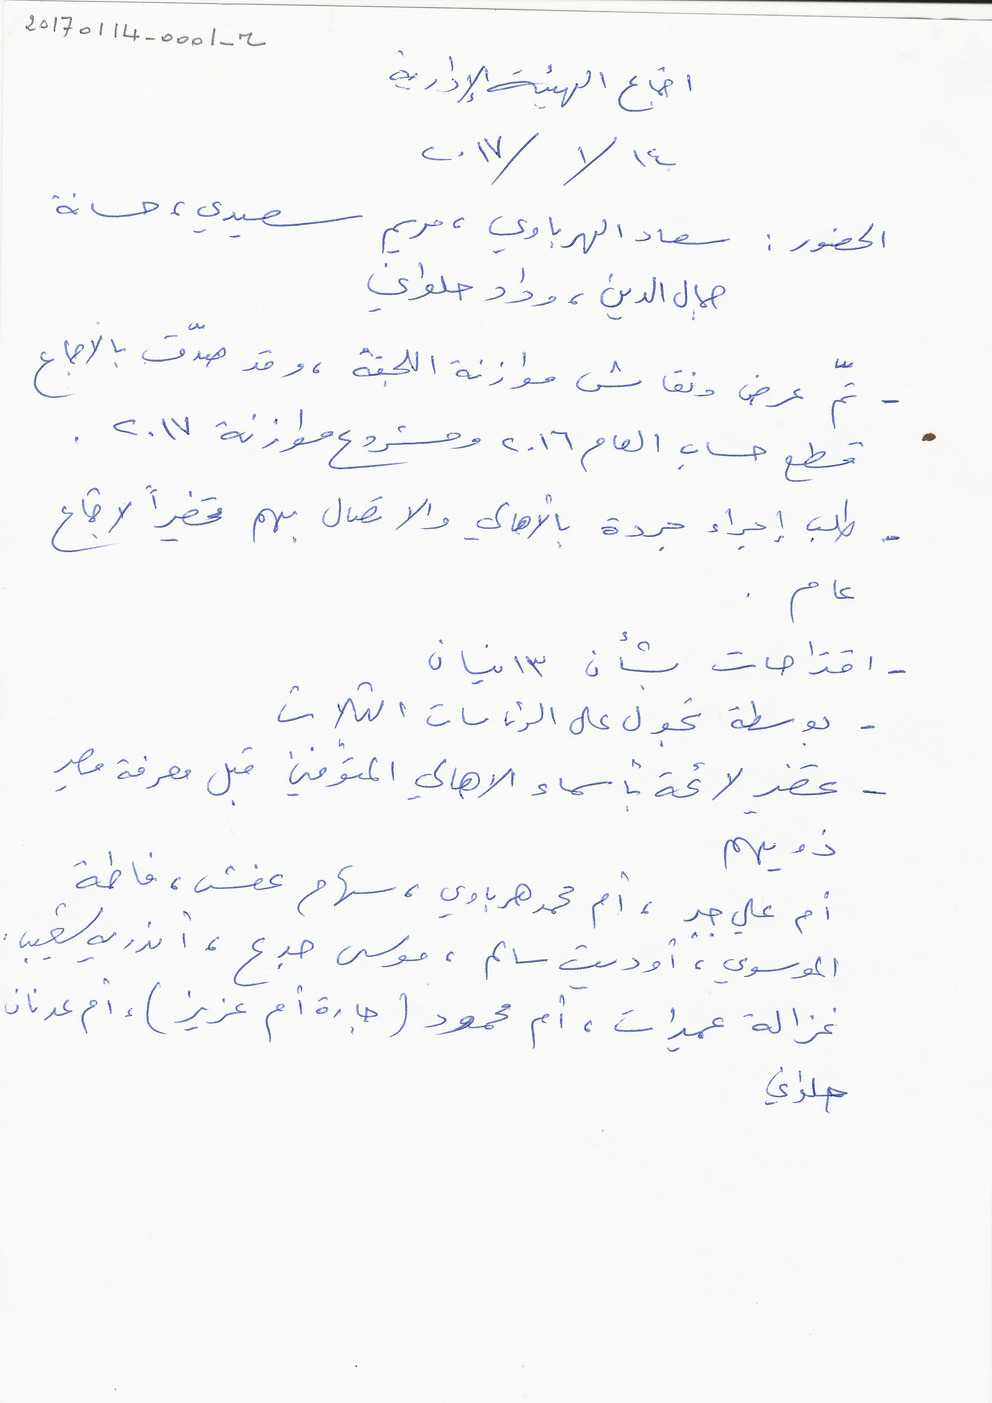 20170114-0001-r
اجتماع الهيئة الإدارية
١٤ / ١ / ٢٠١٧
الحضور : سعاد الهرباوي ، مريم سعيدي ، حسانة
جمال الدين ، وداد حلواني
- تمّ عرض ونقاش موازنة اللجنة ، وقد صدّقت بالاجماع
قطع حساب العام ٢٠١٦ ومشروع موازنة ٢٠١٧ .
- طلب إجراء جردة بالأهالي والاتصال بهم تحضيراً لاجتماع
عام .
- اقتراحات بشأن ١٣ نيسان
- بوسطة تجول على الرئاسات الثلاث
- تحضير لائحة بأسماء الاهالي المتوفّين قبل معرفة مصير
ذويهم
أم علي جبر ، أم محمد هرباوي ، سهام عفش ، فاطمة
الموسوي ، أوديت سالم ، موسى جدع ، أندريه شعيب .
غزالة عميرات ، أم محمود ( جارة أم عزيز ) ، أم عدنان
حلواني